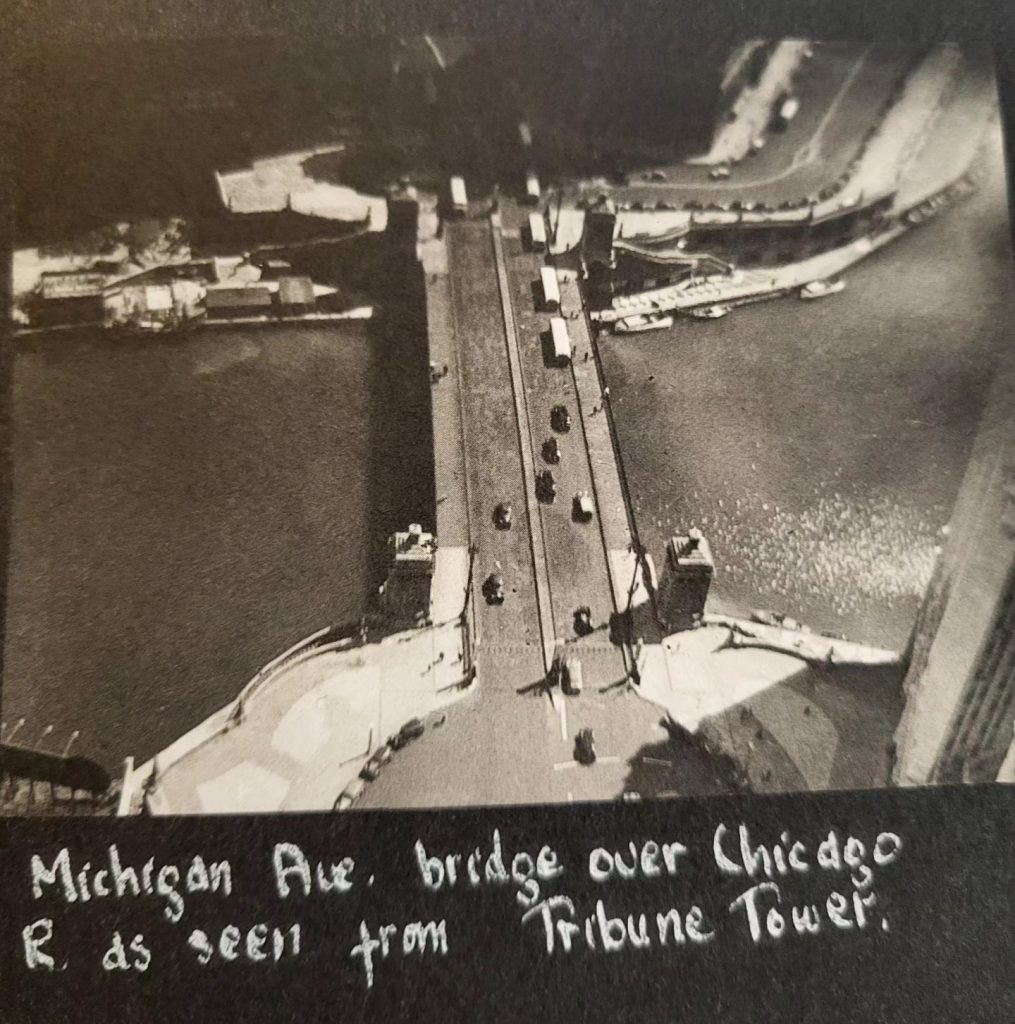 Michigan Ave. bridge over Chicago
R. as seen from Tribune Tower.